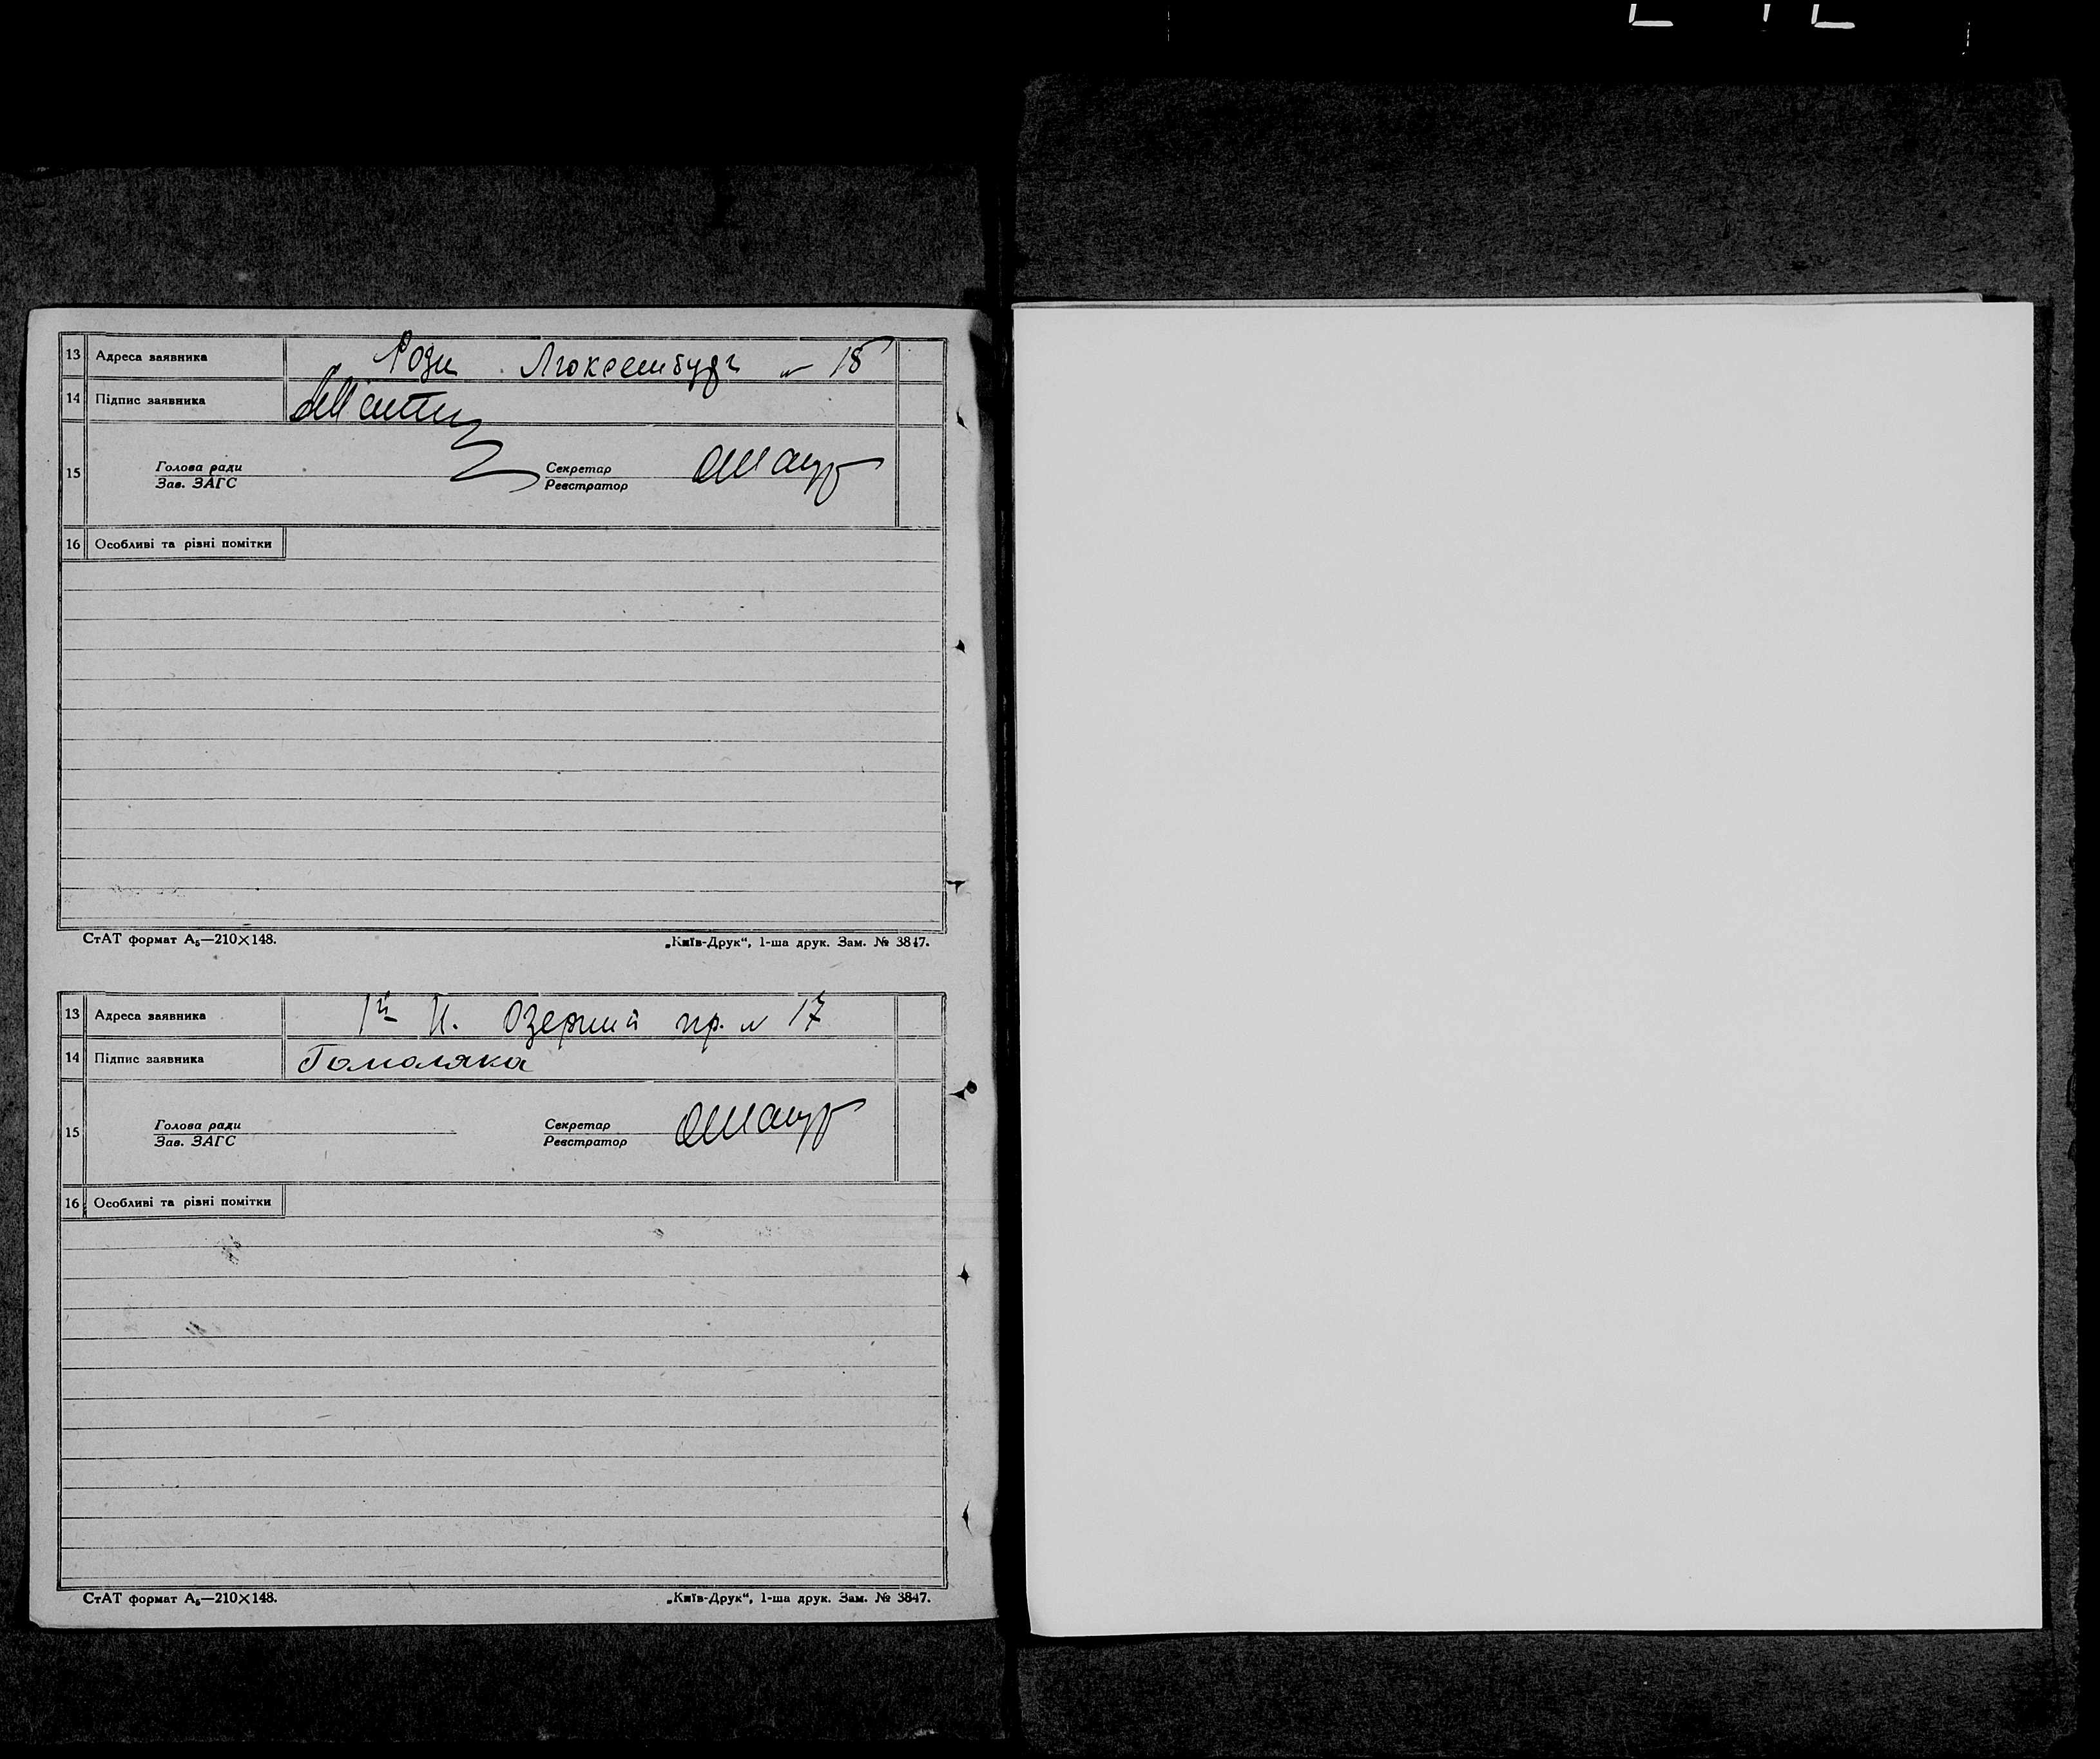 13 Адреса заявника Рози Люксембург № 18
14 Підпис заявника
15 Голова ради Секретар
Зав. ЗАГС Реєстратор
16 Особливі та різні помітки
СтАТ формат А5—210×148. „Київ-Друк“, 1-ша друк. Зам. № 3847.
13 Адреса заявника 1й Н. Озерний пр. № 17
14 Підпис заявника Гомоляка
15 Голова ради Секретар
Зав. ЗАГС Реєстратор
16 Особливі та різні помітки
СтАТ формат А5—210×148. „Київ-Друк“, 1-ша друк. Зам. № 3847.